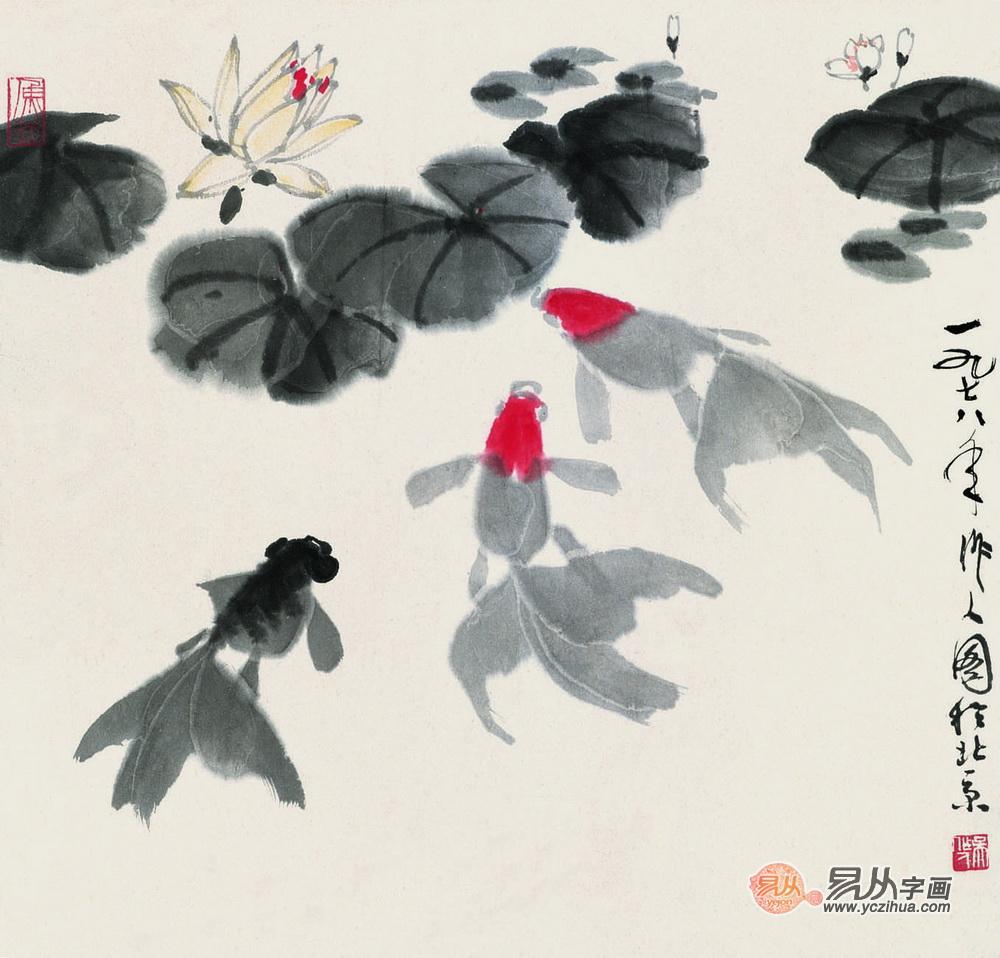 一九七八年作人图于北京
易从
yicjon
易从字画
www.yczihua.com